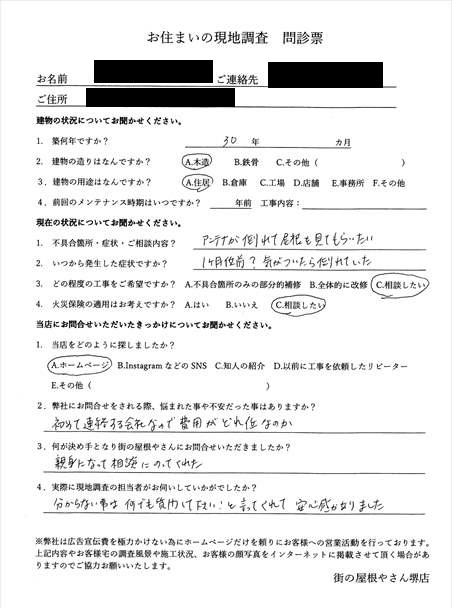 お住まいの現地調査　問診票
お名前　ご連絡先
ご住所
建物の状況についてお聞かせください。
1.　築何年ですか？　30　年　カ月
2.　建物の造りはなんですか？　A.木造　B.鉄骨　C.その他（　）
3．建物の用途はなんですか？　A.住居　B.倉庫　C.工場　D.店舗　E.事務所　F.その他
4．前回のメンテナンス時期はいつですか？　年前　工事内容：
現在の状況についてお聞かせください。
1.　不具合箇所・症状・ご相談内容？　アンテナが倒れて屋根も見てもらいたい
2.　いつから発生した症状ですか？　1ヶ月位前？気がついたら倒れていた
3.　どの程度の工事をご希望ですか？　A.不具合箇所のみの部分的補修　B.全体的に改修　C.相談したい
4.　火災保険の適用はお考えですか？　A.はい　B.いいえ　C.相談したい
当店にお問合せいただいたきっかけについてお聞かせください。
1.　当店をどのように探しましたか？
A.ホームページ　B.Instagram などの SNS　C.知人の紹介　D.以前に工事を依頼したリピーター
E.その他（　）
2．弊社にお問合せをされる際、悩まれた事や不安だった事はありますか？
初めて連絡する会社なので費用がどれ位なのか
3．何が決め手となり街の屋根やさんにお問合せいただきましたか？
親身になって相談にのってくれた
4．実際に現地調査の担当者がお伺いしていかがでしたか？
分からない事は何でも質問して下さい！と言ってくれて安心感がありました
※弊社は広告宣伝費を極力かけない為にホームページだけを頼りにお客様への営業活動を行っております。
上記内容やお客様宅の調査風景や施工状況、お客様の顔写真をインターネットに掲載させて頂く場合があ
りますのでご協力お願いいたします。
街の屋根やさん堺店